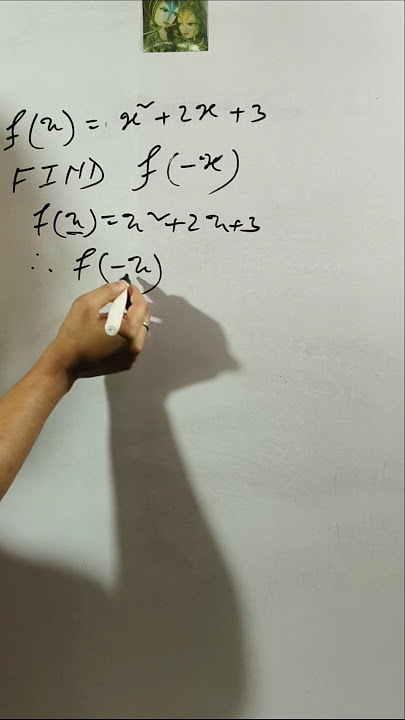 f(x) = x² + 2x + 3
FIND f(-x)
f(x) = x² + 2x + 3
∴ f(-x)